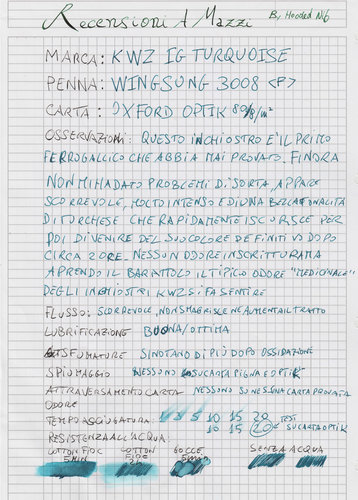 Recensioni A Mazzi By Hooded Nib
MARCA: KWZ IG TURQUOISE
PENNA: WINGSUNG 3008 <F>
CARTA: OXFORD OPTIK 80g/m²
OSSERVAZIONI: QUESTO INCHIOSTRO È IL PRIMO
FERROGALLICO CHE ABBIA MAI PROVATO. FINORA
NON MI HA DATO PROBLEMI DI SORTA, APPARE
SCORREVOLE, MOLTO INTENSO E DI UNA BELLA TONALITÀ
DI TURCHESE CHE RAPIDAMENTE ISCURISCE PER
POI DIVENIRE DEL SUO COLORE DEFINITIVO DOPO
CIRCA 2 ORE. NESSUN ODORE IN SCRITTURA MA
APRENDO IL BARATTOLO IL TIPICO ODORE "MEDICINALE"
DEGLI INCHIOSTRI KWZ SI FA SENTIRE
FLUSSO: SCORREVOLE, NON SMAGRISCE NE AUMENTA IL TRATTO
LUBRIFICAZIONE BUONA/OTTIMA
SFUMATURE SI NOTANO DI PIÙ DOPO OSSIDAZIONE
SPIUMAGGIO NESSUNO SU CARTA PIGNA E OPTIK
ATTRAVERSAMENTO CARTA NESSUNO SU NESSUNA CARTA PROVATA
ODORE
TEMPO ASCIUGATURA: 5 10 15 20 TEST
10 15 20 SU CARTA OPTIK
RESISTENZA ALL'ACQUA:
COTTON FIOC 5 MIN COTTON FIOC GOCCE 5 MIN SENZA ACQUA